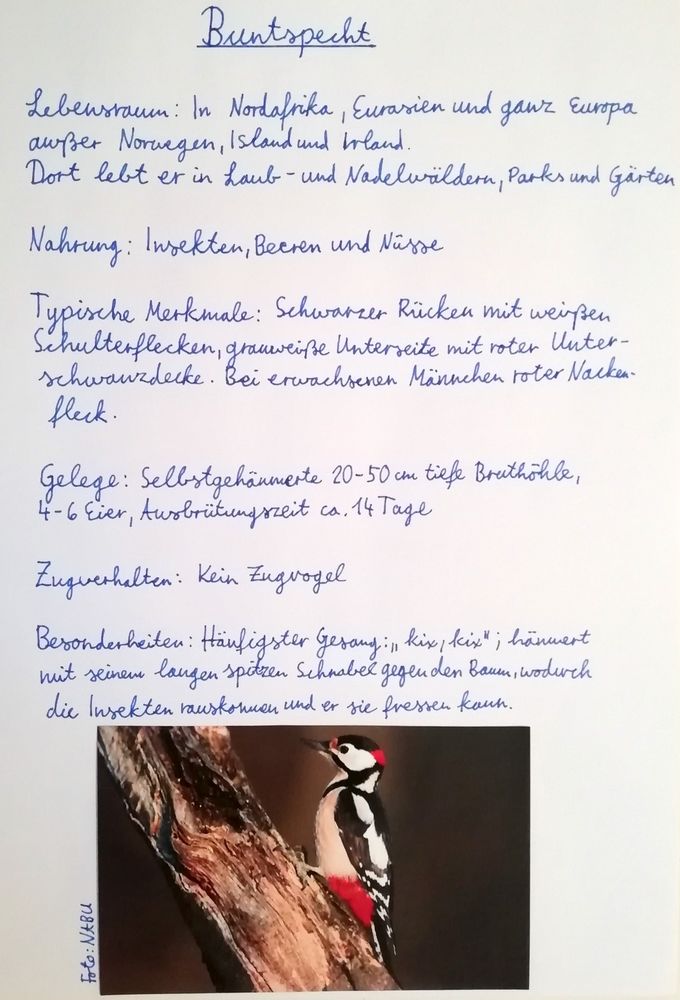 Buntspecht
Lebensraum: In Nordafrika, Eurasien und ganz Europa
außer Norwegen, Island und Irland.
Dort lebt er in Laub- und Nadelwäldern, Parks und Gärten
Nahrung: Insekten, Beeren und Nüsse
Typische Merkmale: Schwarzer Rücken mit weißen
Schulterflecken, grauweiße Unterseite mit roter Unter-
schwanzdecke. Bei erwachsenen Männchen roter Nacken-
fleck.
Gelege: Selbstgehämmerte 20-50 cm tiefe Bruthöhle,
4-6 Eier, Ausbrütungszeit ca. 14 Tage
Zugverhalten: Kein Zugvogel
Besonderheiten: Häufigster Gesang: „kix, kix"; hämmert
mit seinem langen spitzen Schnabel gegen den Baum, wodurch
die Insekten rauskommen und er sie fressen kann.
Foto: NABU